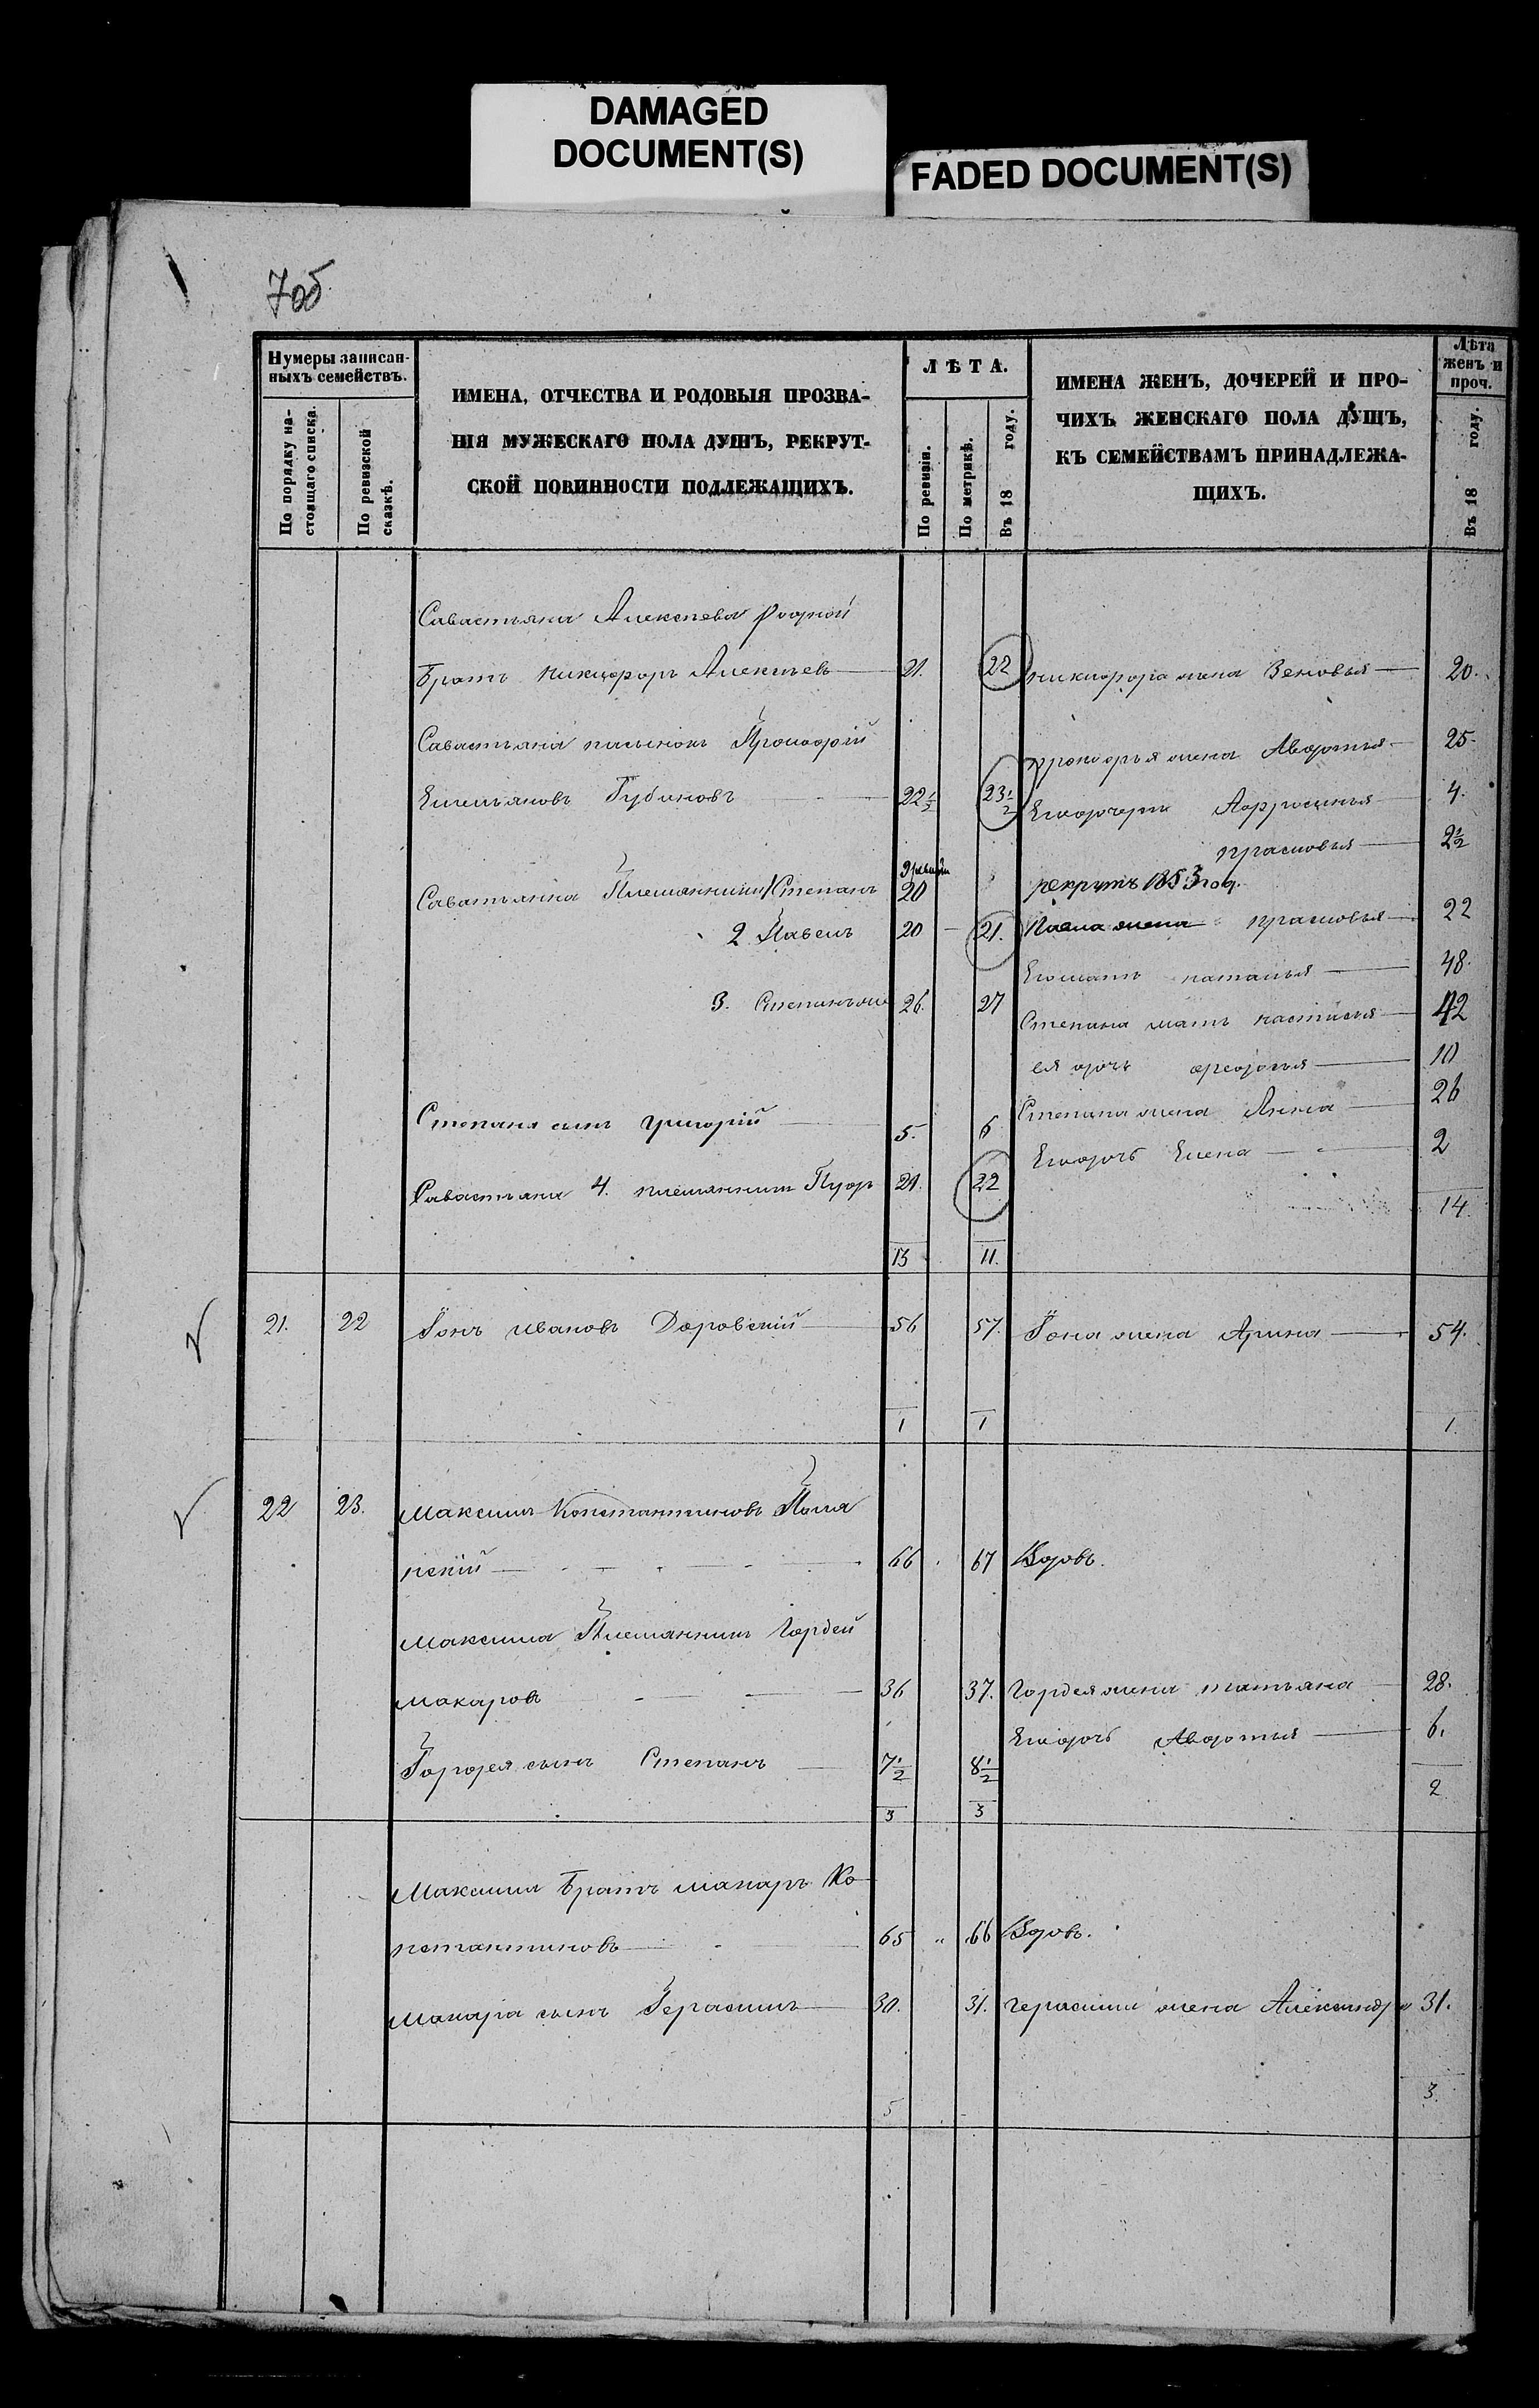 DAMAGED
DOCUMENT(S)
FADED DOCUMENT(S)
7об
Нумеры записан-
ныхъ семействъ.
По порядку на-
стоящаго списка.
По ревизской
сказкѣ.
ИМЕНА, ОТЧЕСТВА И РОДОВЫЯ ПРОЗВА-
НІЯ МУЖЕСКАГО ПОЛА ДУШЪ, РЕКРУТ-
СКОЙ ПОВИННОСТИ ПОДЛЕЖАЩИХЪ.
ЛѢТА.
По ревизіи.
По метрикѣ.
Въ 18 году.
ИМЕНА ЖЕНЪ, ДОЧЕРЕЙ И ПРО-
ЧИХЪ ЖЕНСКАГО ПОЛА ДУШЪ,
КЪ СЕМЕЙСТВАМЪ ПРИНАДЛЕЖА-
ЩИХЪ.
Лѣта
женъ и
проч.
Въ 18 году.
Савастьяна Алексеева родной
Братъ никифоръ Алексѣевъ 21. 22 никифора жена Зеновья 20.
Савастьяна пасынокъ Прокофій
прокофья жена Авдотья 25.
Емельяновъ Губановъ 22 1/2 23 1/2
Его дочери Афросинья 4.
прасковья 2 1/2
Савастьянна Племянники 1 Степанъ 20 рекрутъ 1853 год.
2 Павелъ 20 21. Павла жена прасковья 22
Его мать наталья 48.
3. Степанъ 26. 27
Степана мать настасья 42
ея дочь федосья 10
Степана жена Анна 26
Степана сынъ григорій 5. 6
Его дочь Елена 2
Савастьяна 4. племянникъ 21. 22
14.
13 11.
21. 22 Іонъ ивановъ 56 57. Іона жена Арина 54.
1 1 1.
22 23. максимъ Константиновъ Поля
нскій 66 67 Вдовъ.
максима Племянникъ Гордей
макаровъ 36 37. Гордея жена татьяна 28.
Его дочь Авдотья 6.
Гордея сынъ Степанъ 7 1/2 8 1/2
2
3 3
Максима Братъ макаръ Ко
нстантиновъ 65 66 Вдовъ.
макара сынъ Герасимъ 30. 31. герасима жена Александра 31.
3.
5